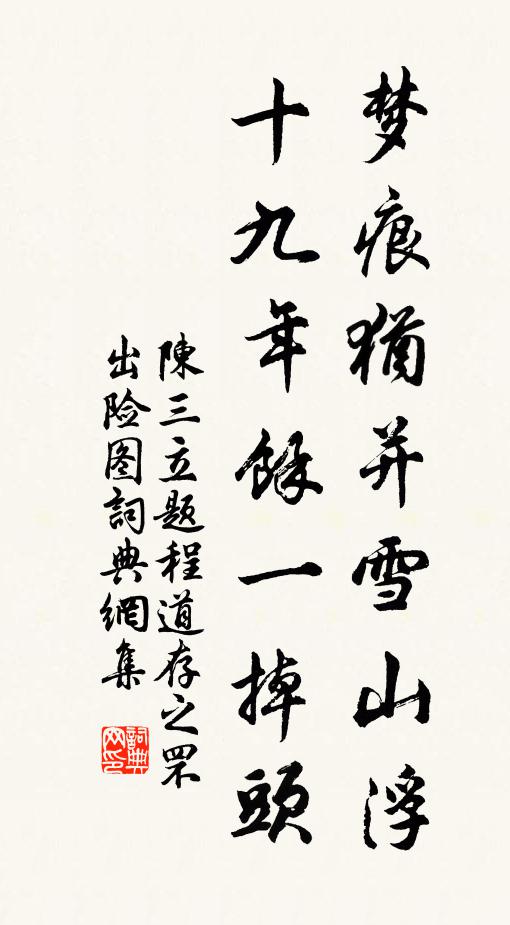 梦痕犹并雪山浮
十九年餘一掉頭
陳三立题程道存之罘
出险图詞典網集
詞典
网印